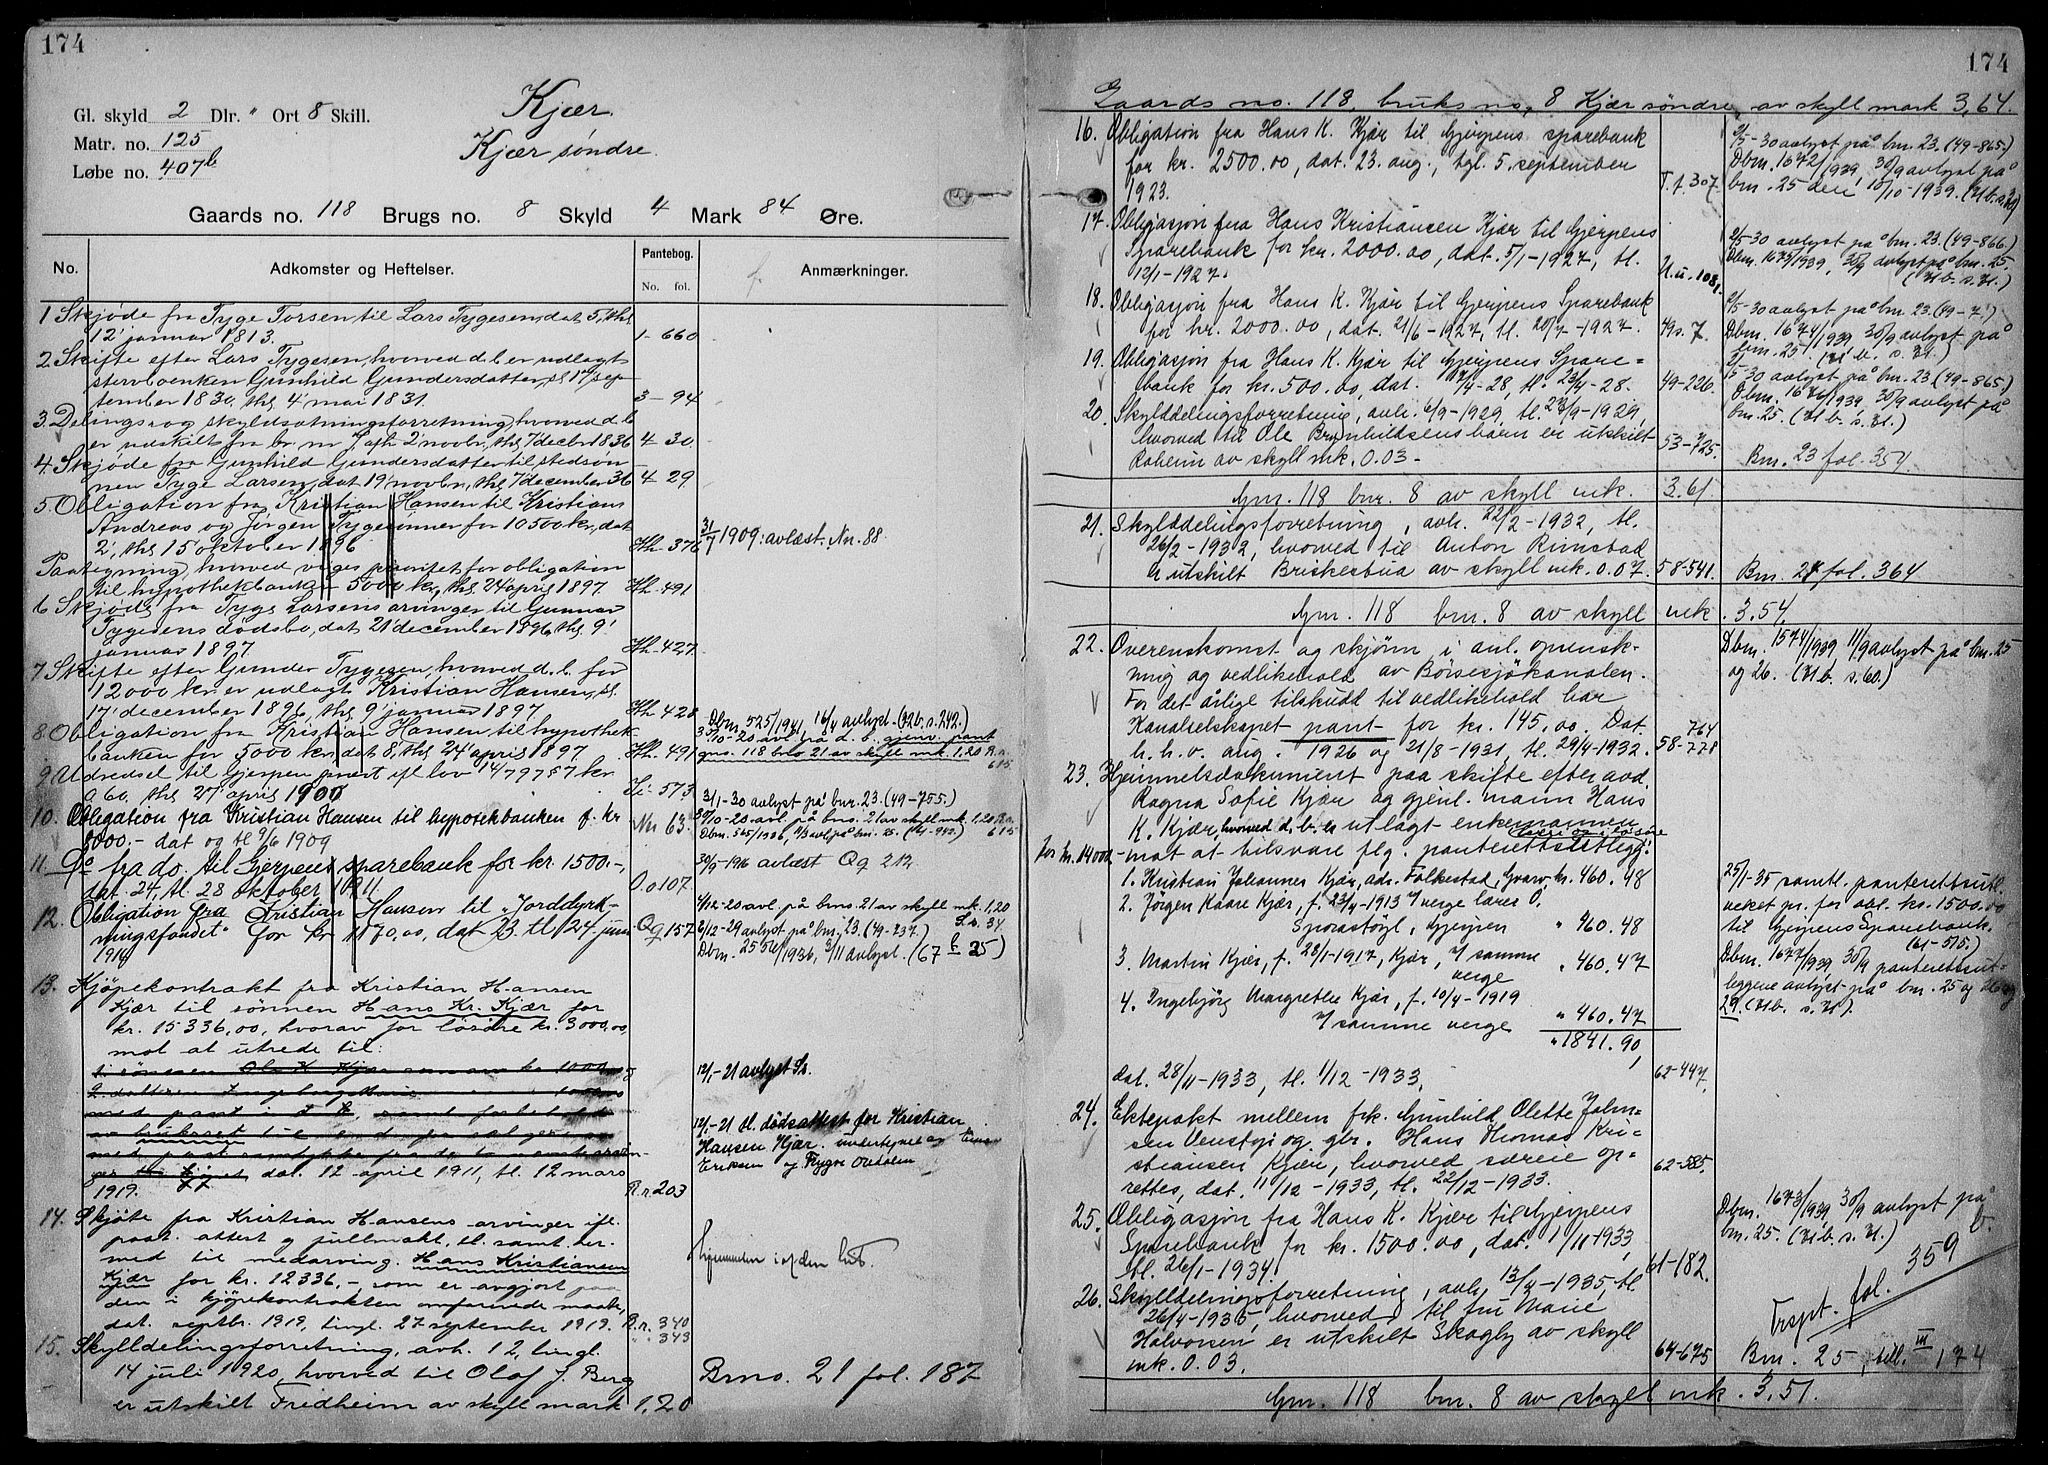 174
Gl. skyld 2 Dlr. " Ort 8 Skill.
Matr. no. 125
Løbe no. 407b
Kjær
Kjær søndre.
Gaards no. 118 Brugs no. 8 Skyld 4 Mark 84 Øre.
No. Adkomster og Heftelser. Pantebog. No. fol. Anmærkninger.
1 Skjøde fra Tyge Torsen til Lars Tygesen, dat. 5, thl.
12 januar 1813. 1- 660
2. Skifte efter Lars Tygesen, hvorved d. b. er udlagt
stervboenken Gunhild Gundersdatter, sl. 17 sep-
tember 1830, thl. 4 mai 1831. 3- 94
3. Delings og skyldsætningsforretning, hvorved d. b.
er udskilt fra br. nr. 7, afh. 2 novbr., thl. 7 decbr. 1836 4 30
4. Skjøde fra Gunhild Gundersdatter til stedsøn-
nen Tyge Larsen, dat. 19 novbr., thl. 7 december 36 4- 29
5 Obligation fra Kristian Hansen til Kristians
Andreas og Jørgen Tygesønner for 10500 kr., dat
2, thl. 15 oktober 1896 Hh. 376 31/7 1909: avlæst. Nn. 88
Paategning, hvorved viges prioritet for obligation
til hypothekbanken 5000 kr., thl. 24 april 1897. Hh. 491
6 Skjøde fra Tyge Larsens arvinger til Gunnar
Tygesens dødsbo, dat. 21 december 1896, thl. 9
januar 1897. Hh. 427
7 Skifte efter Gunder Tygesen, hvorved d. b. for
12000 kr. er udlagt Kristian Hansen, sl.
17 december 1896, thl. 9 januar 1897. Hh 428
8 Obligation fra Kristian Hansen til hypothek-
banken for 5000 kr., dat. 8, thl. 24 april 1897. Hh. 491
Dbm. 525/1941 16/4 avlyst. (72b. s. 242.)
30/10-20 avl. fra d. b. gjenv. pant
gno. 118 bno 21 av skyld mk. 1,20 R.n. 615
9 Udredsel til Gjerpen prest ifl lov 14/7 97 § 7 kr.
0.60, thl. 27 april 1900 Ii- 573
31/1-30 avlyst på bnr. 23. (49-755.)
10. Obligation fra Kristian Hansen til hypotekbanken f. kr
8000.- dat og tl 9/6 1909 Nn 63
30/10-20 avl. på bno. 21 av skyll mk. 1,20 R.n. 615
11. Do fra do. til Gjerpens sparebank for kr. 1500.-,
dat. 24, tl. 28 oktober 1911. O.o 107. 30/9-1916 avlæst Qq 212.
12. Obligation fra Kristian Hansen til "Jorddyrk-
ningsfondet" for kr 1170,00, dat 23. tl 24 juni
1916 Qq 157
4/12-20 avl. på bno. 21 av skyll mk. 1,20 S.s. 34
6/12-29 avlyst på bnr. 23. (49-737.)
Dbm. 2554/1936, 3/11 avlyst. (67 b 25)
13. Kjøpekontrakt fra Kristian Hansen
Kjær til sønnen Hans Kr. Kjær for
kr. 15336,00, hvorav for løsøre kr. 3000,00,
mot at utrede til:
12/1-21 avlyst S.s.
12/1-21 tl. dødsattest for Kristian
Hansen Kjær.
dat. 12 april 1911, tl. 12 mars
1919. R.r. 203
14. Skjøte fra Kristian Hansens arvinger ifl.
paat. attest og fullmakt, tl. samt. her-
med til medarving Hans Kristiansen
Kjær for kr. 12336,- som er avgjort paa
den i kjøpekontrakten omførende maate,
dat. septbr. 1919, tingl. 27 september 1919. R.r. 340
" " 343
15. Skylldelingsforretning, avh. 12, tingl.
14 juli 1920, hvorved til Olaf J. Berg
er utskilt Fredheim av skyll mark 1,20 Brno. 21 fol. 187
174
Gaards no. 118, bruks no. 8 Kjær søndre, av skyll mark 3,64.
16. Obligation fra Hans K. Kjær til Gjerpens sparebank
for kr. 2500.00, dat. 23. aug., tgl. 5. september
1923. T.t. 307.
2/5-30 avlyst på bnr. 23. (49-865.)
Dbm. 1672/1939, 30/9 avlyst på
bnr. 25 den 10/10-1939. (71b. s. 71)
17. Obligasjon fra Hans Kristiansen Kjær til Gjerpens
Sparebank for kr. 2000.00, dat. 5/1-1927, tl.
12/1-1927. U.u. 1081.
2/5-30 avlyst på bnr. 23. (49-866.)
Dbm. 1675/1939, 30/9 avlyst på bnr. 25.
(71b. s. 71.)
18. Obligasjon fra Hans K. Kjær til Gjerpens Sparebank
for kr. 2000.00, dat. 21/6-1927, tl. 20/7-1927. 49 s. 7.
2/5-30 avlyst på bnr. 23. (49-7.)
Dbm. 1674/1939 30/9 avlyst på
bnr. 25. (71 b. s. 71.)
19. Obligasjon fra Hans K. Kjær til Gjerpens Spare-
bank for kr. 500.00, dat. 17/4-28, tl. 23/4-28. 49-226.
2/5-30 avlyst på bnr. 23 (49-865.)
Dbm. 1676/1939, 30/9 avlyst på
bnr. 25. (71 b. s. 71.)
20. Skylddelingsforretning, avh. 6/9-1929, tl. 23/9-1929,
hvorved til Ole Brynhildsens barn er utskilt
Roheim av skyll mk. 0.03.- 53-725. Bnr. 23 fol. 354
Gnr. 118 bnr. 8 av skyll mk. 3.61
21. Skylddelingsforretning, avh. 22/2-1932, tl.
26/2-1932, hvorved til Anton Rimstad
er utskilt Briskesbua av skyll mk. 0.07. 58-541. Bnr. 24 fol. 364
Gnr. 118 bnr. 8 av skyll mk. 3.54.
22. Overenskomst og skjønn i anl. opmusk-
ning og vedlikehold av Børsesjøkanalen.
For det årlige tilskudd til vedlikehold har
Kanalselskapet pant for kr. 145.00. Dat.
h. h. v. aug. 1926 og 21/8-1931, tl. 29/4-1932. 58-764 778
Dbm. 1574/1939, 11/9 avlyst på bnr. 25
og 26. (71b. s. 60.)
23. Hjemmelsdokument paa skifte efter avd.
Ragna Sofie Kjær og gjenl. mann Hans
K. Kjær, hvorved d. b. er utlagt enkemannen
for kr. 14000,- mot at tilsvare flg. panterettsutlegg:
1. Kristian Johannes Kjær, adr. Folkestad, Gvarv, kr. 460.48
2. Jørgen Kaare Kjær, f. 23/4-1913 v/ verge lærer O.
Sporastøyl, Gjerpen " 460.48
3. Martin Kjær, f. 28/1-1917, Kjær, v/ samme
verge " 460.47
4. Ingebjørg Margrethe Kjær, f. 10/4-1919
v/ samme verge " 460.47
" 1841.90
dat. 28/11-1933, tl. 1/12-1933. 62-447.
25/1-35 samtl. panterettsutl.
veket pr. for obl. kr. 1500.00
til Gjerpens Sparebank.
(61-515.)
Dbm. 1677/1939 30/9 panterettsut-
leggene avlyst på bnr. 25 og 26 og
29. (71b. s. 71).
24. Ektepakt mellem frk. Gunhild Olette John-
sen Venstøp og gbr. Hans Thomas Kri-
stiansen Kjær, hvorved særeie op-
rettes, dat. 11/12-1933, tl. 22/12-1933. 62-585.
25. Obligasjon fra Hans K. Kjær til Gjerpens
Sparebank for kr. 1500.00, dat. 1/11-1933,
tl. 26/1-1934. 61-182.
Dbm. 1673/1939 30/9 avlyst på
bnr. 25. (71b. s. 71.)
26. Skylldelingsforretning, avh. 13/4-1935, tl.
26/4-1935, hvorved til fru Marie
Halvorsen er utskilt Skogly av skyll
mk. 0.03. 64-675 Bnr. 25, till. III 174
Trspt. fol. 359 b.
Gnr. 118 bnr. 8 av skyll mk. 3.51.